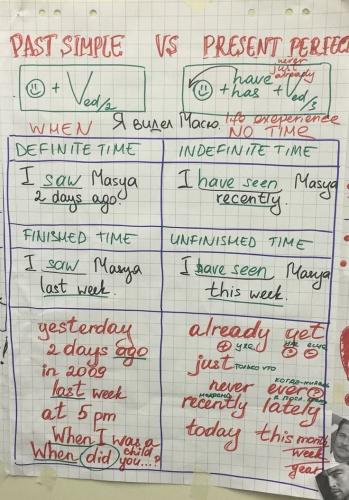 PAST SIMPLE VS PRESENT PERFECT
never
just
already
☺ + V ed/2
☺ + have has + V ed/3
WHEN
Я видел Масю.
life experience
NO TIME
DEFINITE TIME
INDEFINITE TIME
I saw Masya
2 days ago
I have seen Masya
recently.
FINISHED TIME
UNFINISHED TIME
I saw Masya
last week.
I have seen Masya
this week.
yesterday
2 days ago
in 2009
last week
at 5 pm
When I was a child
When did you...?
already yet
+ уже уже еще
? -
just только что
never ever когда-нибудь
recently lately
недавно в посл.
today this month
week
year